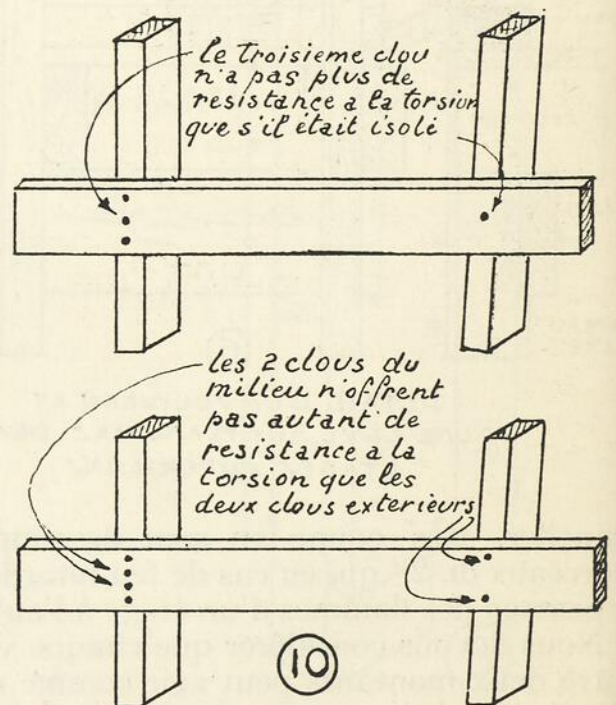 le Troisieme clou
n'a pas plus de
resistance a la torsion
que s'il était isolé
les 2 clous du
milieu n'offrent
pas autant de
resistance a la
torsion que les
deux clous exterieurs
10